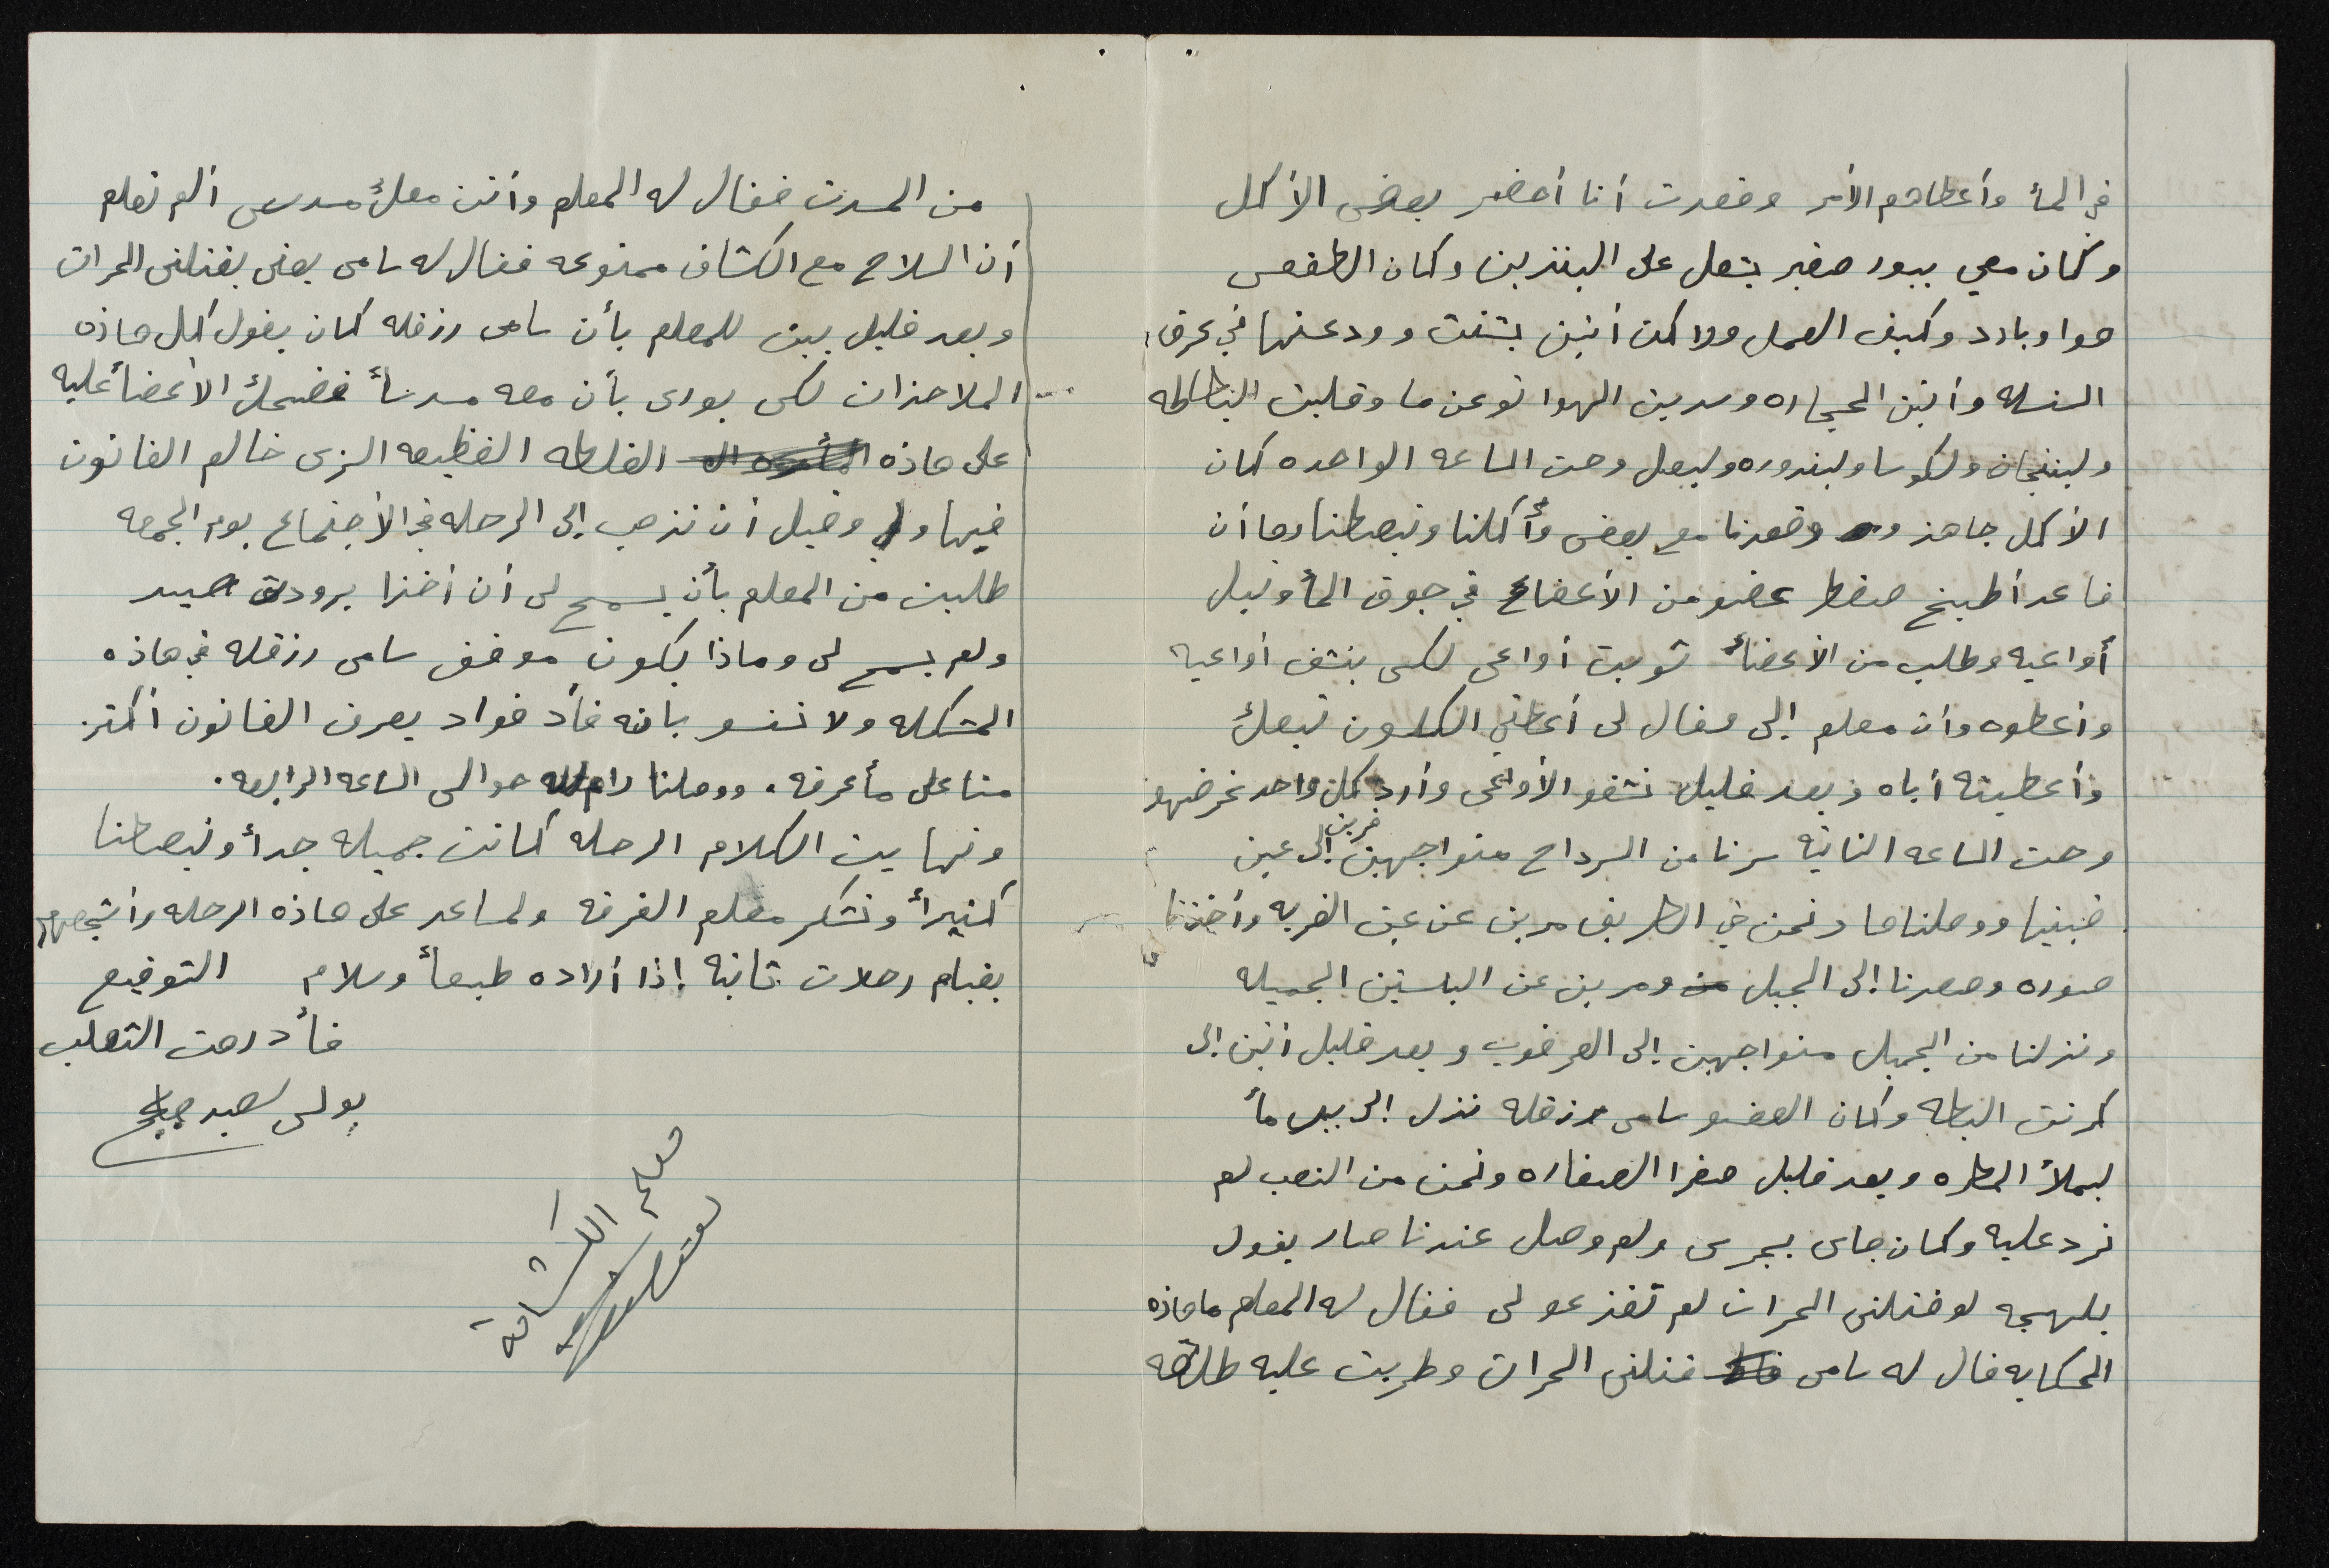 في المأ وأعطاهم الأمر وقعدت أنا أحضر بعض الأكل
وكمان معي ببور صغير يشعل على البنزين وكان الطقس
هوا وبارد وكيف العمل ولاكن أتين بشنت وودعنها في عرق
السنسله وأتين الحجاره وسدين الهوا نوعن ما وقليت البطاطه
ولبنجان ولكوسا ولبندوره ولبصل وحت الساعه الواحده كان
الأكل جاهز وقعدنا مع بعض وأكلنا ونبصطنا وما أن
قاعد أطبخ صقط عضو من الأعضاء في جوف المأ ونبل
أواعيه وطلب من الأعضأ تويت أواعي لكي ينشف أواعيه
وأعطوه وأن معلم إلى فقال لي أعطني الكلسون تبعك
وأعطيته أياه وبعد قليل نشفو الأواعي وأرد كل واحد غرضهو
وحت الساعه الثانيه سرنا من السرداح متواجهين إلى عين قرين
قبينيا ووصلناها ونحن في الطريق مرين عن عين القريه وأخذنا
صوره وصعدنا إلى الجبل ومرين عن البلستين الجميله
ونزلنا من الجبل متواجهين إلى العرقوب وبعد قليل أتين إلى
كرنت البطه وكان العضو سامي رزقله نزل إلى بير مأ
ليملأ المطره وبعد قليل صفرا الصفاره ونحن من التعب لم
نرد عليه وكان جاي بجري ولم وصل عندنا صار يقول
بلهجه لو قتلني الحرات لم تفزعو لي فقال له المعلم ماهاذه
الحكايه قال له سامي قتلني الحرات وطريت عليه طلقه
من المسدت فقال له المعلم وأنت معك مسدس ألم تعلم
أن السلاح مع الكشاف ممنوعه فقال له سامي يعني يقتلني الحرات
وبعد قليل بين للمعلم بأن سامي رزقله كان يقول كل هاذه
الملاحذات لكي يوري بأن معه مسدسأ فضحك الأعضأ عليه
على هاذه الغلطه الفظيعه الزي خالم القانون
فيها وقبل أن نذهب إلى الرحله في الأجتماع يوم الجمعه
طلبت من المعلم بأن يسمح لي أن أخذا برودة صيد
ولم يسمح لي وماذا يكون موقف سامي رزقله في هاذه
المشكله ولا ننسو بانه قأد فواد يعرف القانون أكثر
منا على مأعرفه. ووصلنا رام الله حوالي الساعه الرابعه.
ونهايت الكلام الرحله كانت جميله جدأ ونبصطنا
كثيرأ ونشكر معلم الفرقه ولساعد على هاذه الرحله وأشجعهم
بقيام رحلات ثانيه إذا أراده طبعأ وسلام التوقيع
قأد رهت الثعلب
بولس سعيد
معلم الكشافة